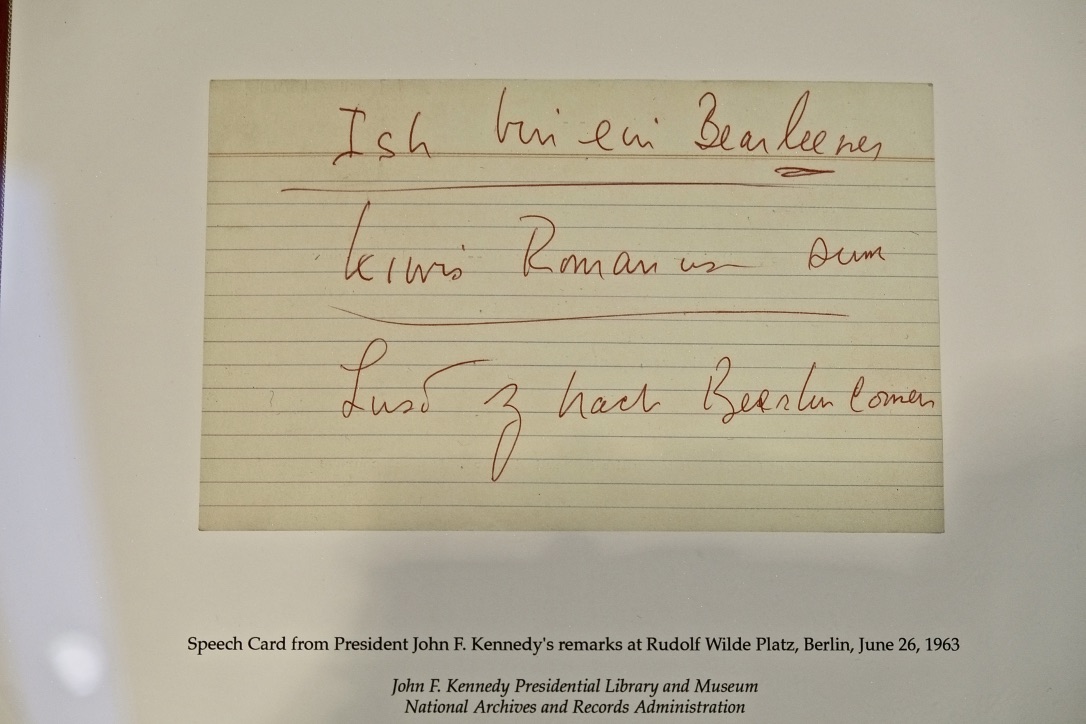 Ish bin ein Bearleener
kiwis Romanus sum
Lusd z nach Bearlin comen
Speech Card from President John F. Kennedy's remarks at Rudolf Wilde Platz, Berlin, June 26, 1963
John F. Kennedy Presidential Library and Museum
National Archives and Records Administration